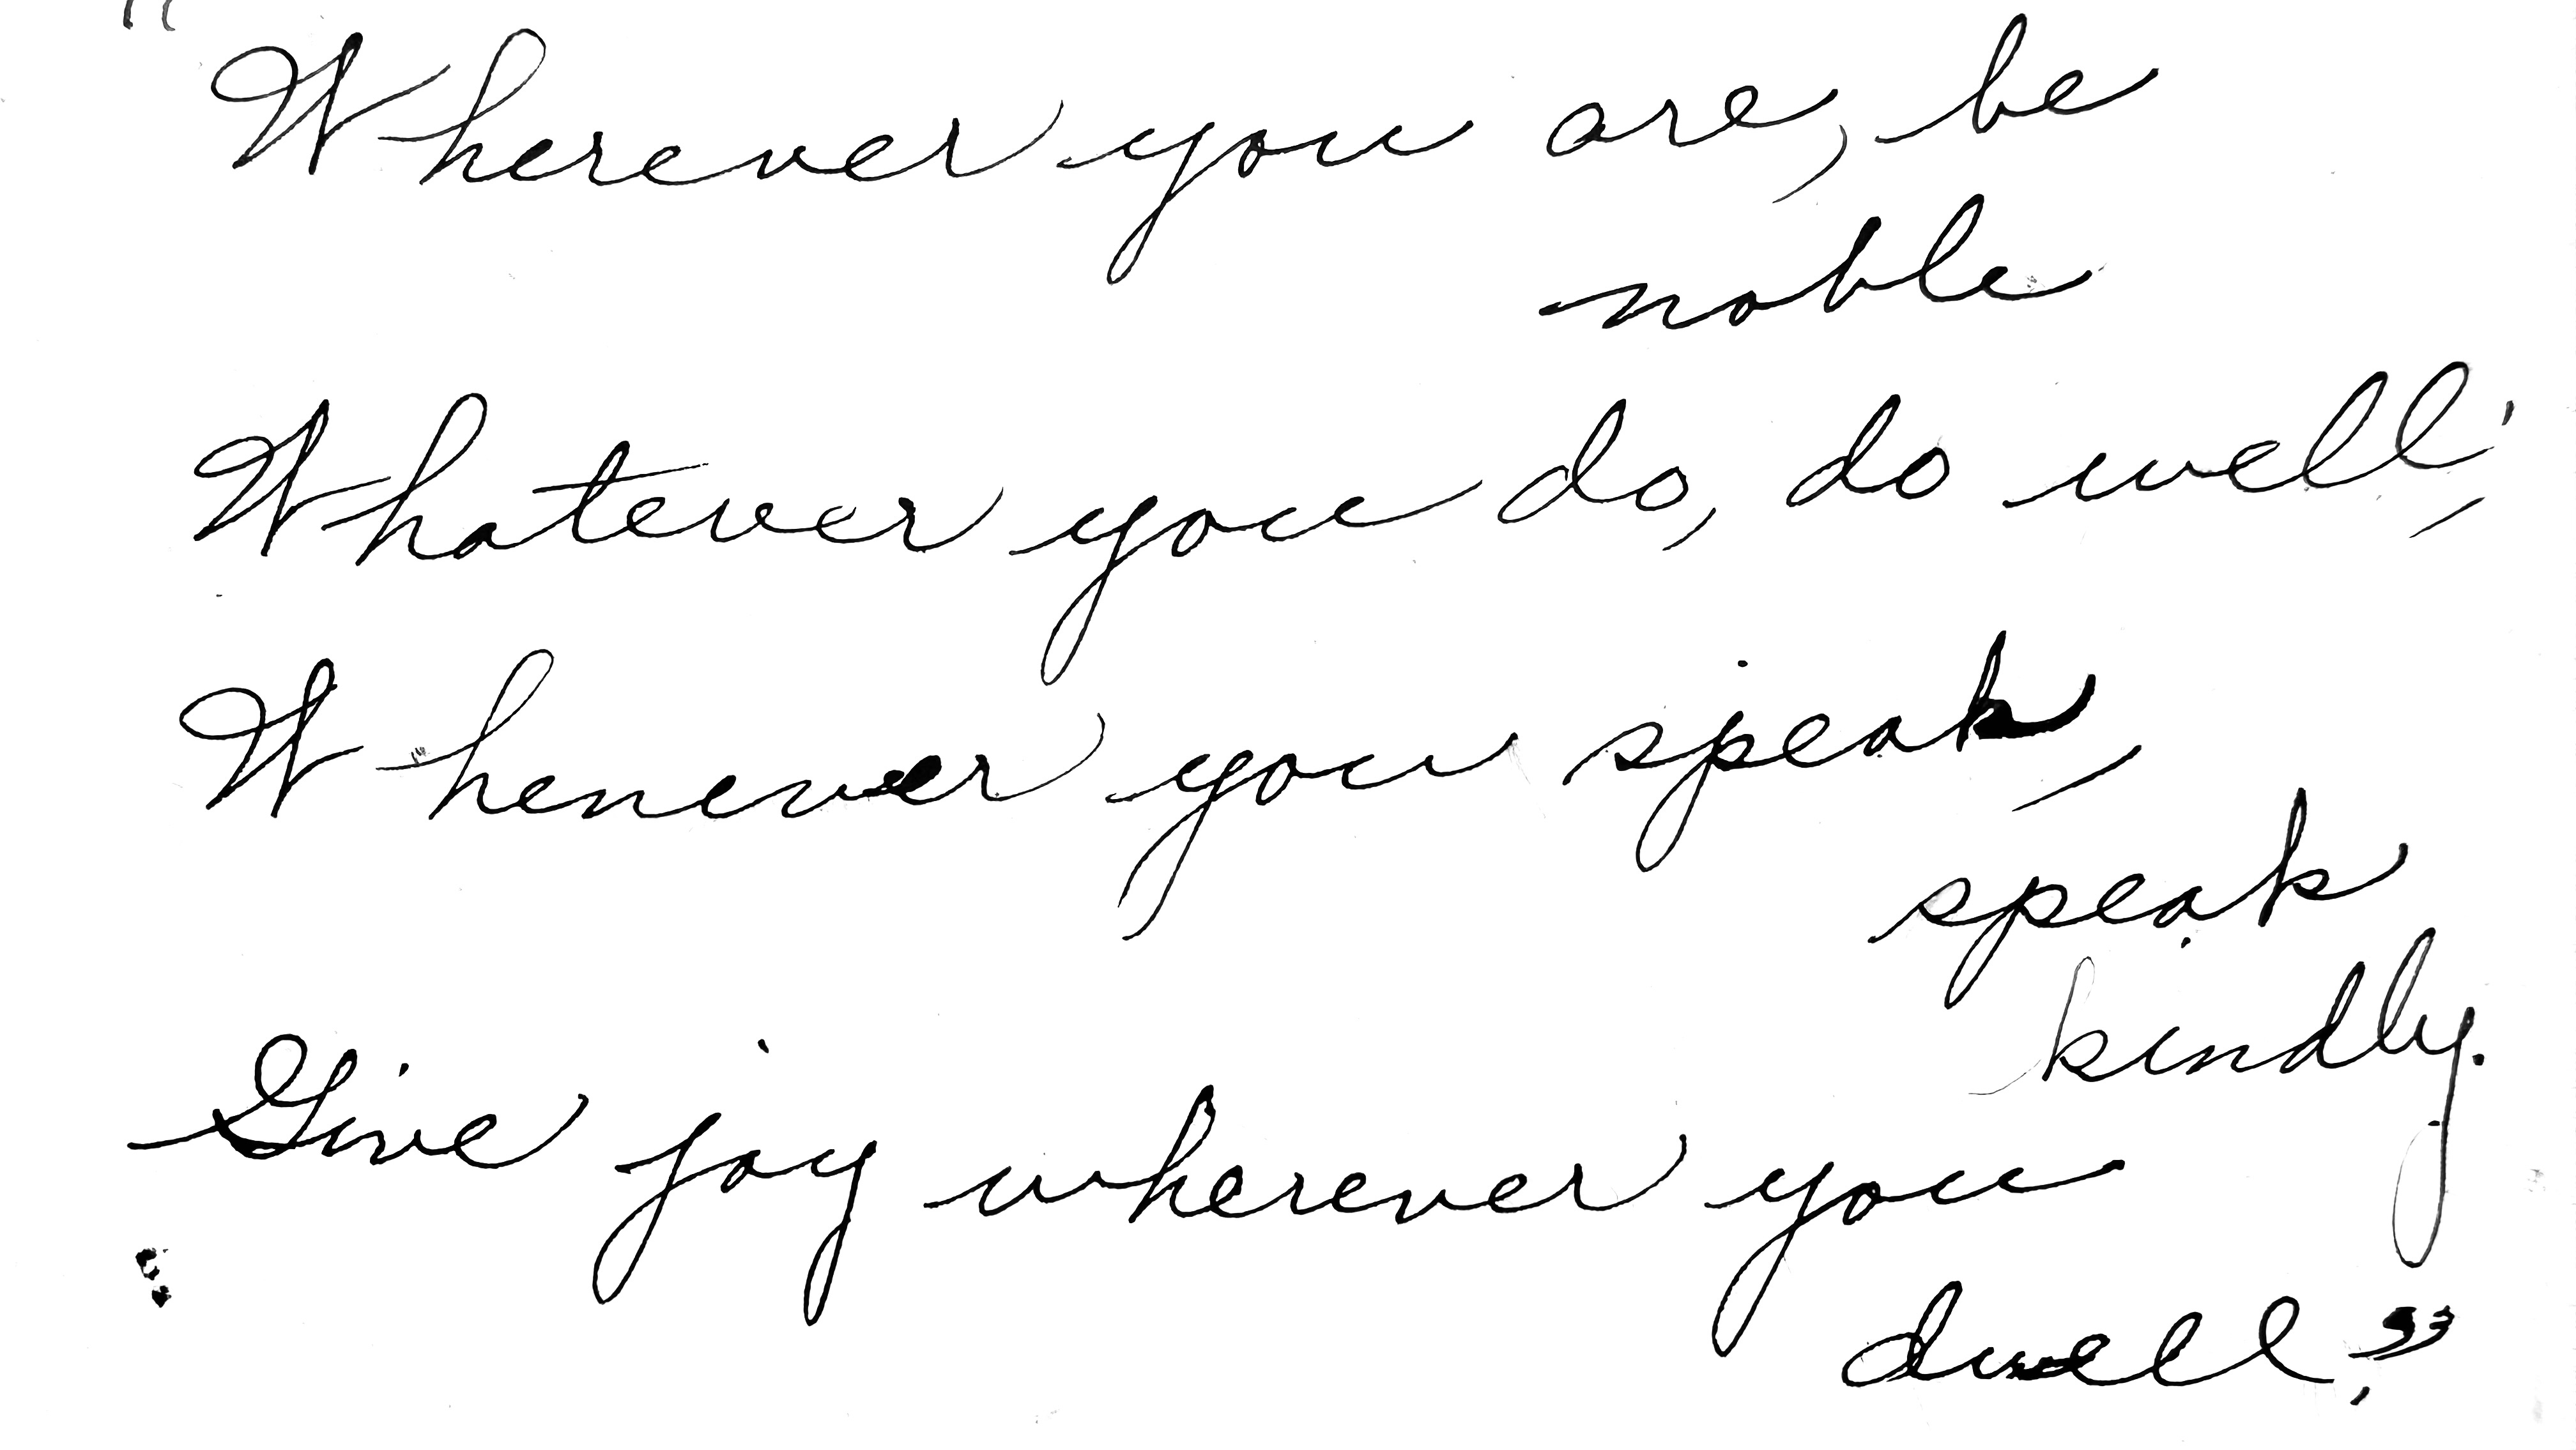 "Wherever you are, be
noble
Whatever you do, do well;
Whenever you speak,
speak
kindly.
Give joy wherever you
dwell."